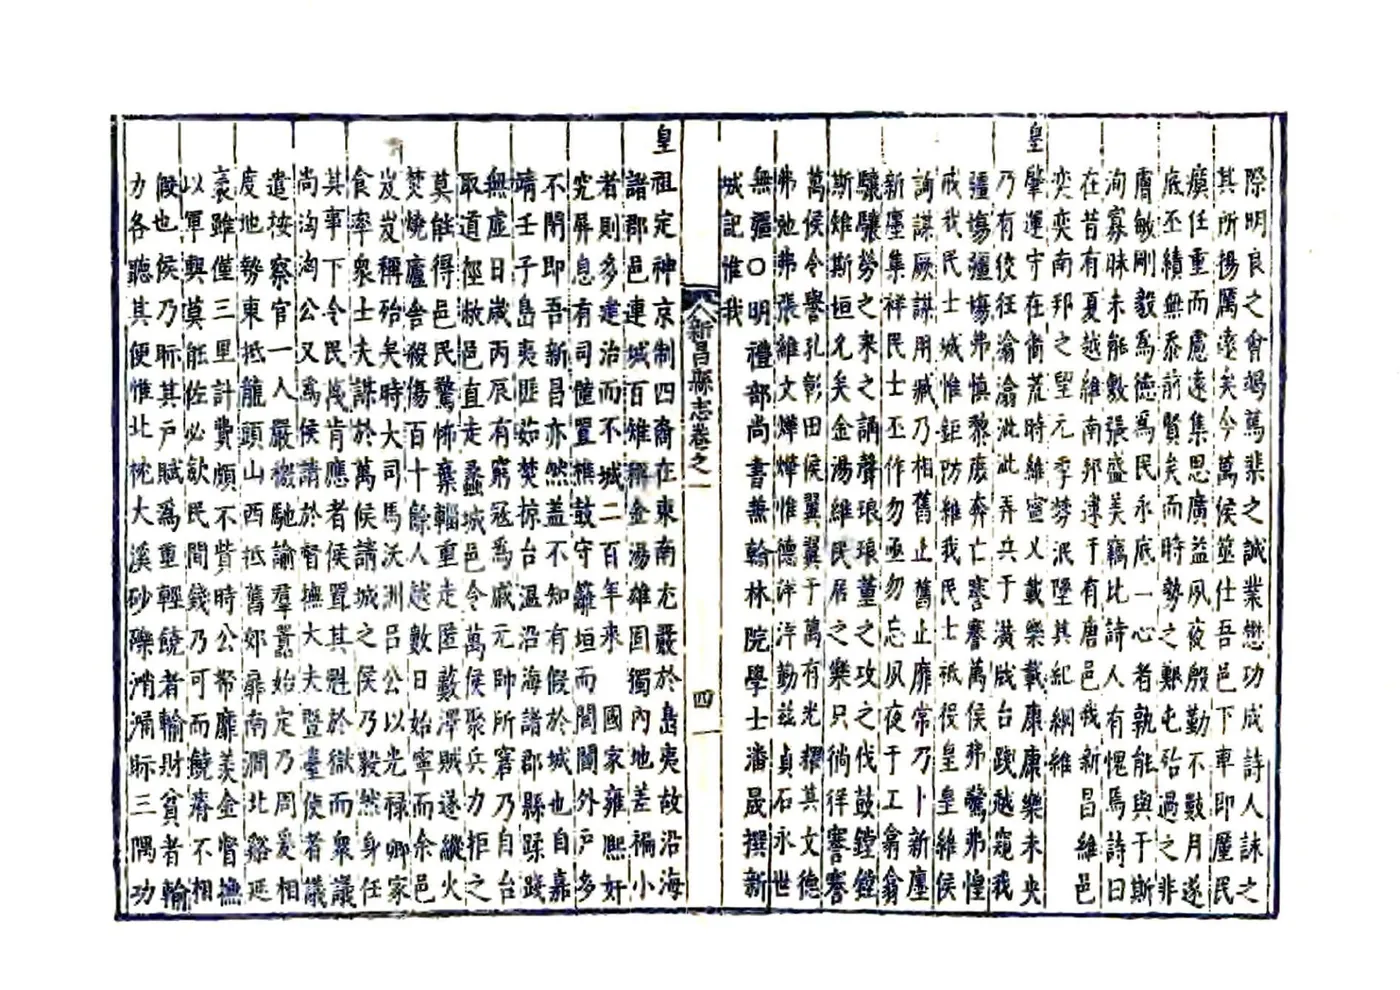 際明良之會竭篤棐之誠業懋功成詩人誄之
其所揚厲遠矣今萬侯筮仕吾邑下車即廑民
瘼任重而慮遠集思廣益夙夜殷勤不數月遂
底丕績無忝前賢矣而時勢之艱屯殆過之非
膚敏剛毅爲德爲民永底一心者孰能與于斯
洵寡昧未能敷張盛美竊比詩人有愧焉詩曰
在昔有夏越維南邦逮于有唐邑我新昌維邑
奕奕南邦之望元季棼泯墜其紀綱維
皇肇運守在裔荒時維寧乂載樂載康康樂未央
乃有狡狂渝渝泚泚弄兵于潢戕台踐越窺我
疆塲疆塲弗慎黎庶奔亡謇謇萬侯弗驚弗惶
戒我民士城惟鉅防維我民士祗役皇皇維侯
詢謀厥謀用臧乃相舊止舊止靡常乃卜新廛
新廛集祥民士丕作勿亟勿忘夙夜于工翕翕
驤驤勞之來之誦聲琅琅董之攻之伐鼓鏜鏜
斯雉斯垣允矣金湯維民居之樂只徜徉謇謇
萬侯令譽孔彰田侯翼翼于萬有光耀其文德
弗弛弗張維文燁燁惟德洋洋勤兹貞石永世
無疆○明禮部尚書兼翰林院學士潘晟撰新
城記惟我
新昌縣志卷之一 四一
皇祖定神京制四裔在東南尤嚴於島夷故沿海
諸郡邑連城百雉稱金湯雄固獨內地差褊小
者則多走治而不城二百年來國家雍熙奸
宄屏息有司僅置樵鼓守籬垣而閭閻外戶多
不閉即吾新昌亦然蓋不知有假於城也自嘉
靖壬子島夷匪茹焚掠台溫沿海諸郡縣蹂踐
無虛日歲丙辰有窮寇爲戚元帥所窘乃自台
取道徑敝邑直走蠡城邑令萬侯聚兵力拒之
莫能得邑民驚怖棄輜重走匿藪澤賊遂縱火
焚燒廬舍殺傷百十餘人越數日始寧而余邑
岌岌稱殆矣時大司馬沃洲呂公以光祿卿家
食率衆士夫謀於萬侯請城之侯乃毅然身任
其事下令民茂肯應者侯置其魁於獄而衆議
尚洶洶公又爲侯請於督撫大夫暨臺使者議
遣按察官一人嚴檄馳諭羣囂始定乃周爰相
度地勢東抵龍頭山西抵舊郊靡南澗北谿延
袤雖僅三里計費頗不貲時公帑靡羨金督撫
以軍興莫能佐必歛民間錢乃可而饒瘠不相
假也侯乃眎其戶賦爲重輕饒者輸財貧者輸
力各聽其便惟北枕大溪砂礫涓涌眎三隅功